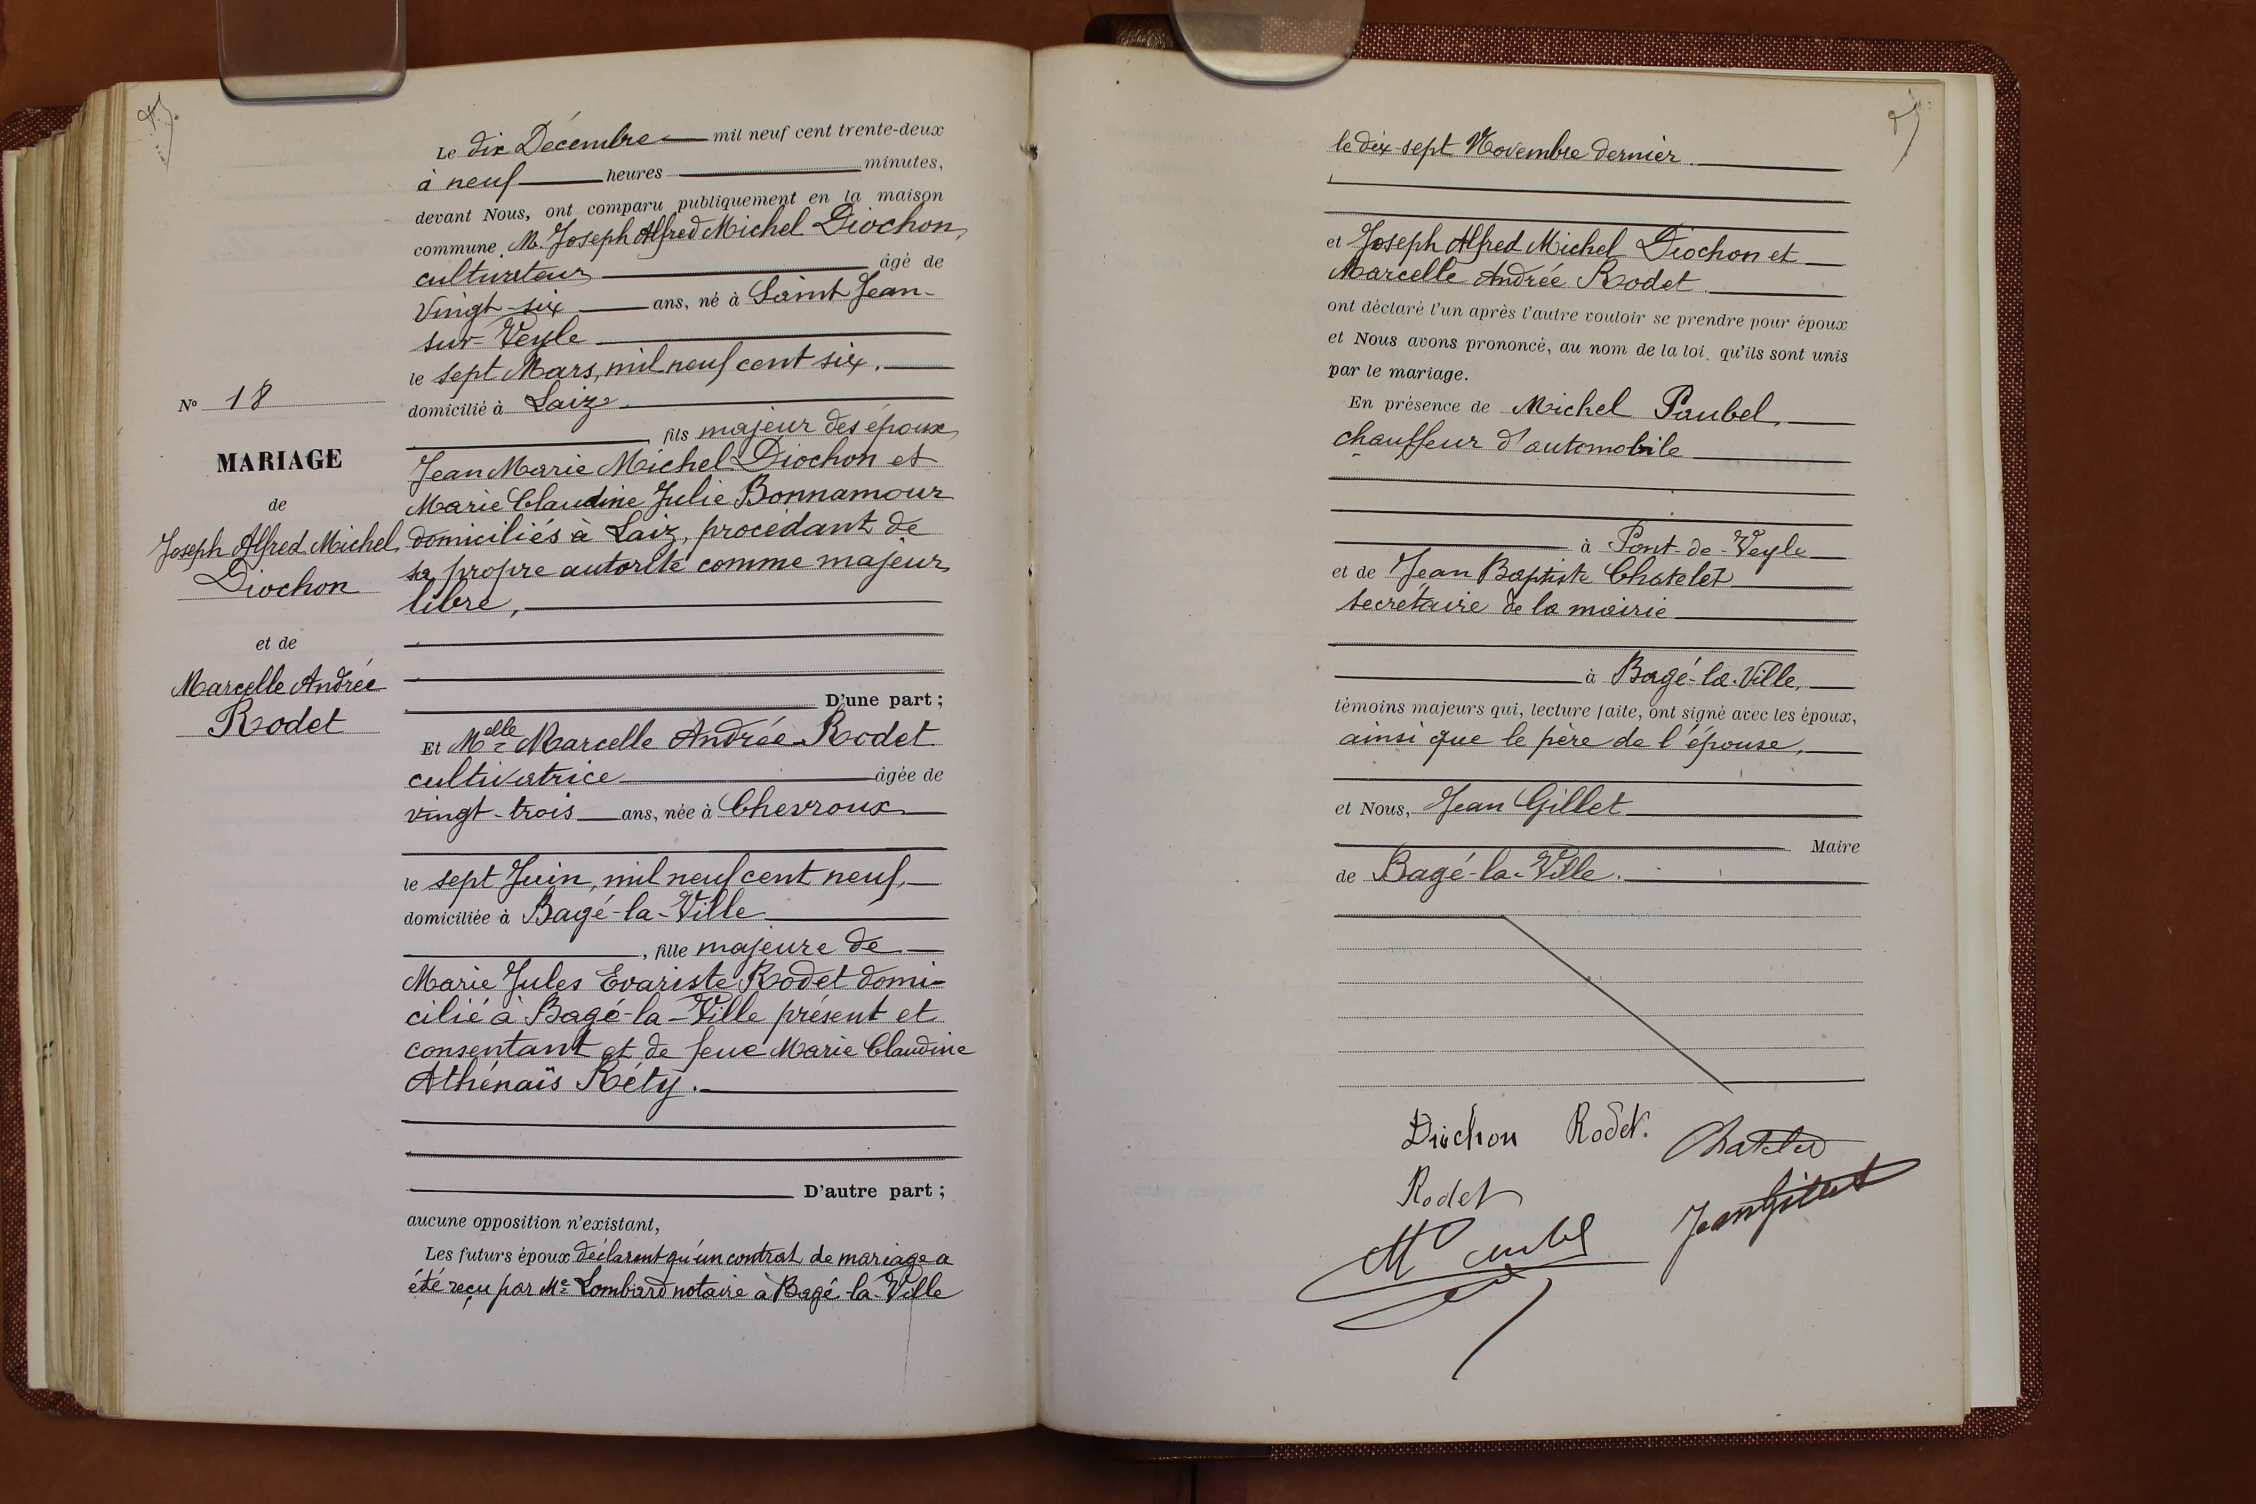 Le dix Décembre mil neuf cent trente-deux
à neuf heures minutes,
devant Nous, ont comparu publiquement en la maison
commune M. Joseph Alfred Michel Diochon,
cultivateur âgé de
vingt-six ans, né à Saint Jean-
sur-Veyle
le sept Mars, mil neuf cent six,
domicilié à Laiz
fils majeur des époux
Jean Marie Michel Diochon et
Marie Claudine Julie Bonnamour
domiciliés à Laiz, procédant de
sa propre autorité comme majeur
libre,
D'une part ;
Et Melle Marcelle Andrée Rodet
cultivatrice âgée de
vingt-trois ans, née à Chevroux
le sept Juin, mil neuf cent neuf,
domiciliée à Bagé-la-Ville
, fille majeure de
Marie Jules Evariste Rodet domi-
cilié à Bagé-la-Ville présent et
consentant et de feue Marie Claudine
Athénaïs Réty.
D'autre part ;
aucune opposition n'existant,
Les futurs époux déclarent qu'un contrat de mariage a
été reçu par Me Lombard notaire à Bagé-la-Ville
No 18
MARIAGE
de
Joseph Alfred Michel
Diochon
et de
Marcelle Andrée
Rodet
le dix-sept Novembre dernier.
et Joseph Alfred Michel Diochon et
Marcelle Andrée Rodet
ont déclaré l'un après l'autre vouloir se prendre pour époux
et Nous avons prononcé, au nom de la loi, qu'ils sont unis
par le mariage.
En présence de Michel Paubel,
chauffeur d'automobile
à Pont-de-Veyle
et de Jean Baptiste Chatelet
secrétaire de la mairie
à Bagé-la-Ville,
témoins majeurs qui, lecture faite, ont signé avec les époux,
ainsi que le père de l'épouse,
et Nous, Jean Gillet
Maire
de Bagé-la-Ville.
Diochon Rodet. Chatelet
Rodet
Jean Gillet